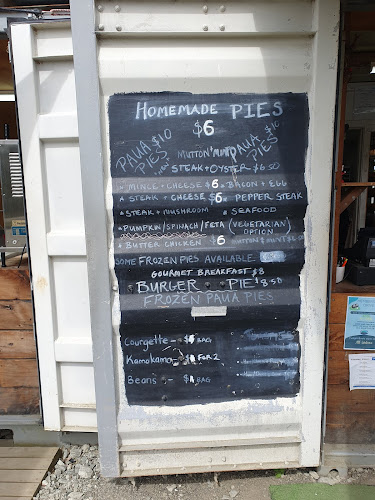 HOMEMADE PIES
$6
PAUA $10 PIES
PAUA $10 PIES
MUTTON 'MINT
STEAK + OYSTER $6.50
MINCE + CHEESE $6 BACON + EGG
STEAK + CHEESE $6 PEPPER STEAK
STEAK + MUSHROOM SEAFOOD
PUMPKIN/SPINACH/FETA (VEGETARIAN OPTION)
BUTTER CHICKEN 6
SOME FROZEN PIES AVAILABLE
GOURMET BREAKFAST $8
BURGER PIE $8.50
FROZEN PAUA PIES
Courgette - BAG
Kamokamo - FOR 2
Beans - BAG